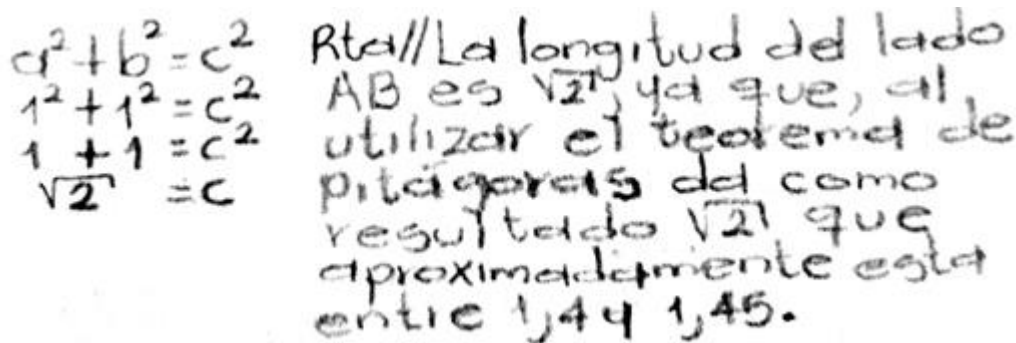 a² + b² = c²
1² + 1² = c²
1 + 1 = c²
√2 = c
Rta//La longitud del lado
AB es √2, ya que, al
utilizar el teorema de
pitágoras da como
resultado √2 que
aproximadamente esta
entre 1,4 y 1,45.